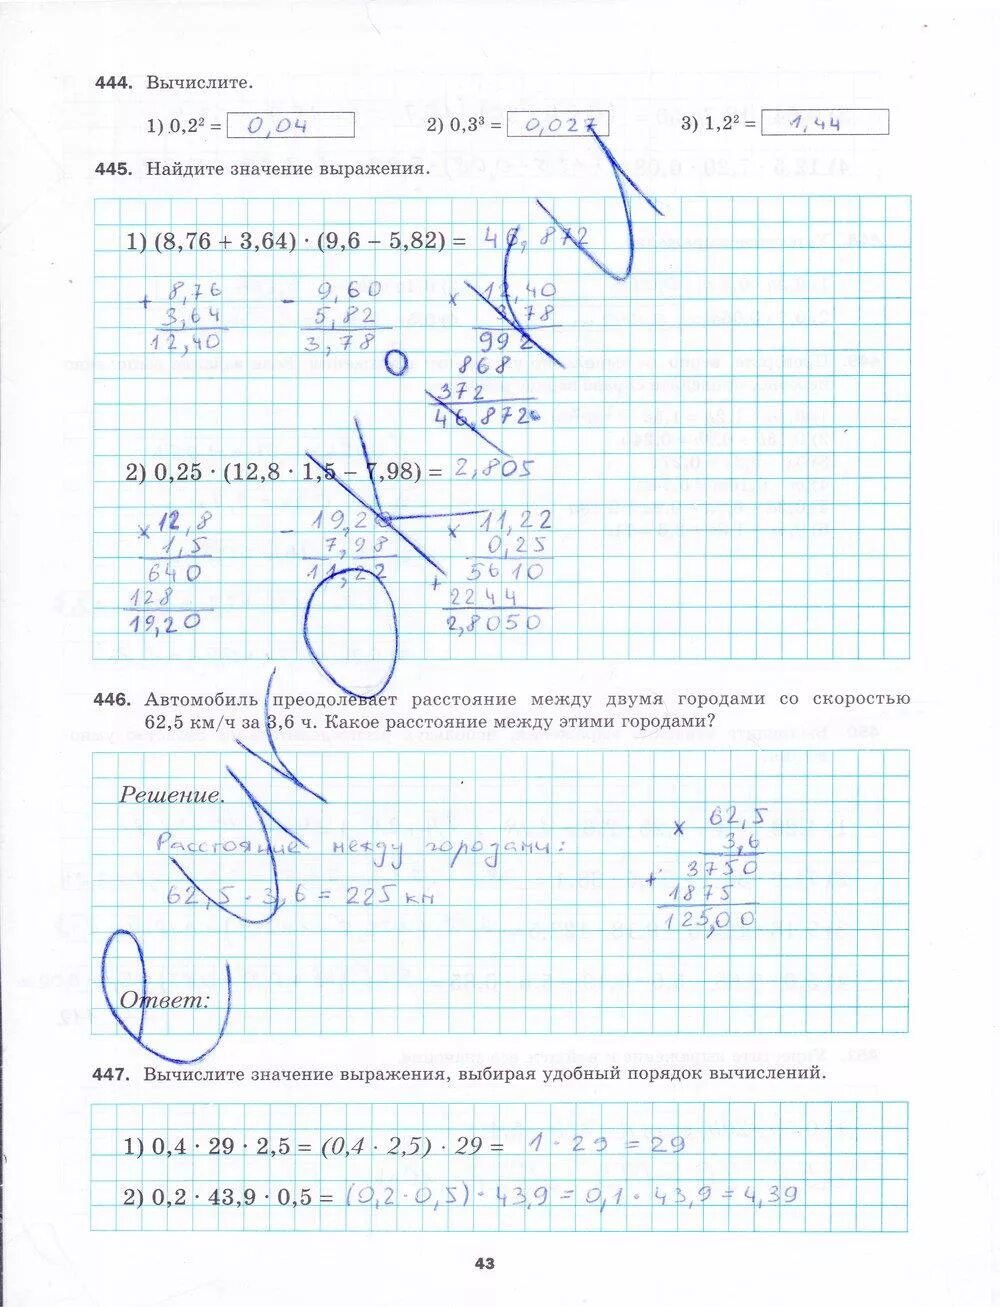 444. Вычислите.
1) 0,2² = 0,04 2) 0,3³ = 0,027 3) 1,2² = 1,44
445. Найдите значение выражения.
1) (8,76 + 3,64) · (9,6 – 5,82) = 46,872
+ 8,76 – 9,60 × 12,40
3,64 5,82 3,78
12,40 3,78 992
868
372
46,872
2) 0,25 · (12,8 · 1,5 – 7,98) = 2,805
× 12,8 – 19,20 × 11,22
1,5 7,98 0,25
640 11,22 5610
128 + 2244
19,20 2,8050
446. Автомобиль преодолевает расстояние между двумя городами со скоростью
62,5 км/ч за 3,6 ч. Какое расстояние между этими городами?
Решение.
× 62,5
3,6
Расстояние между городами:
+ 3750
62,5 · 3,6 = 225 км
1875
125,00
Ответ:
447. Вычислите значение выражения, выбирая удобный порядок вычислений.
1) 0,4 · 29 · 2,5 = (0,4 · 2,5) · 29 = 1 · 29 = 29
2) 0,2 · 43,9 · 0,5 = (0,2 · 0,5) · 43,9 = 0,1 · 43,9 = 4,39
43